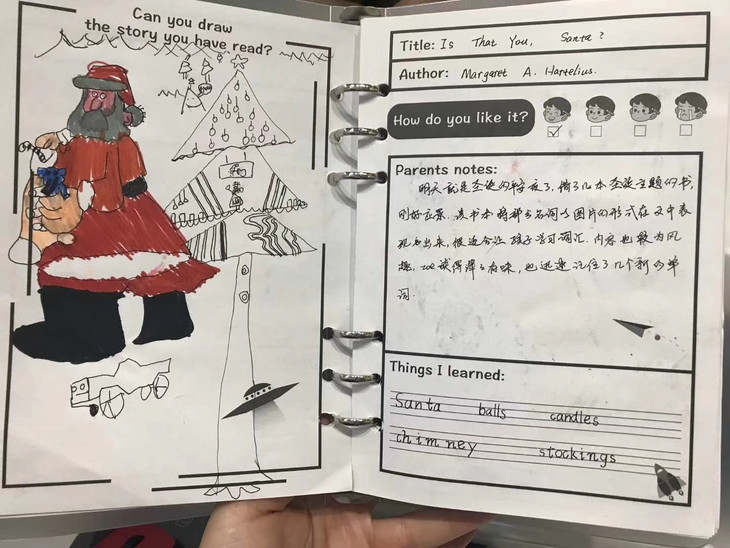 Can you draw
the story you have read?
Title: Is That You, Santa?
Author: Margaret A. Hartelius.
How do you like it?
Parents notes:
明天就是圣诞的平安夜了, 借了几本圣诞主题的书,
刚好应景. 该书本将部分名词以图片的形式在文中表
现了出来, 很适合让孩子学习词汇. 内容也较为风
趣. 读得津津有味, 也迅速记住了几个新的单
词.
Things I learned:
Santa balls candles
chimney stockings